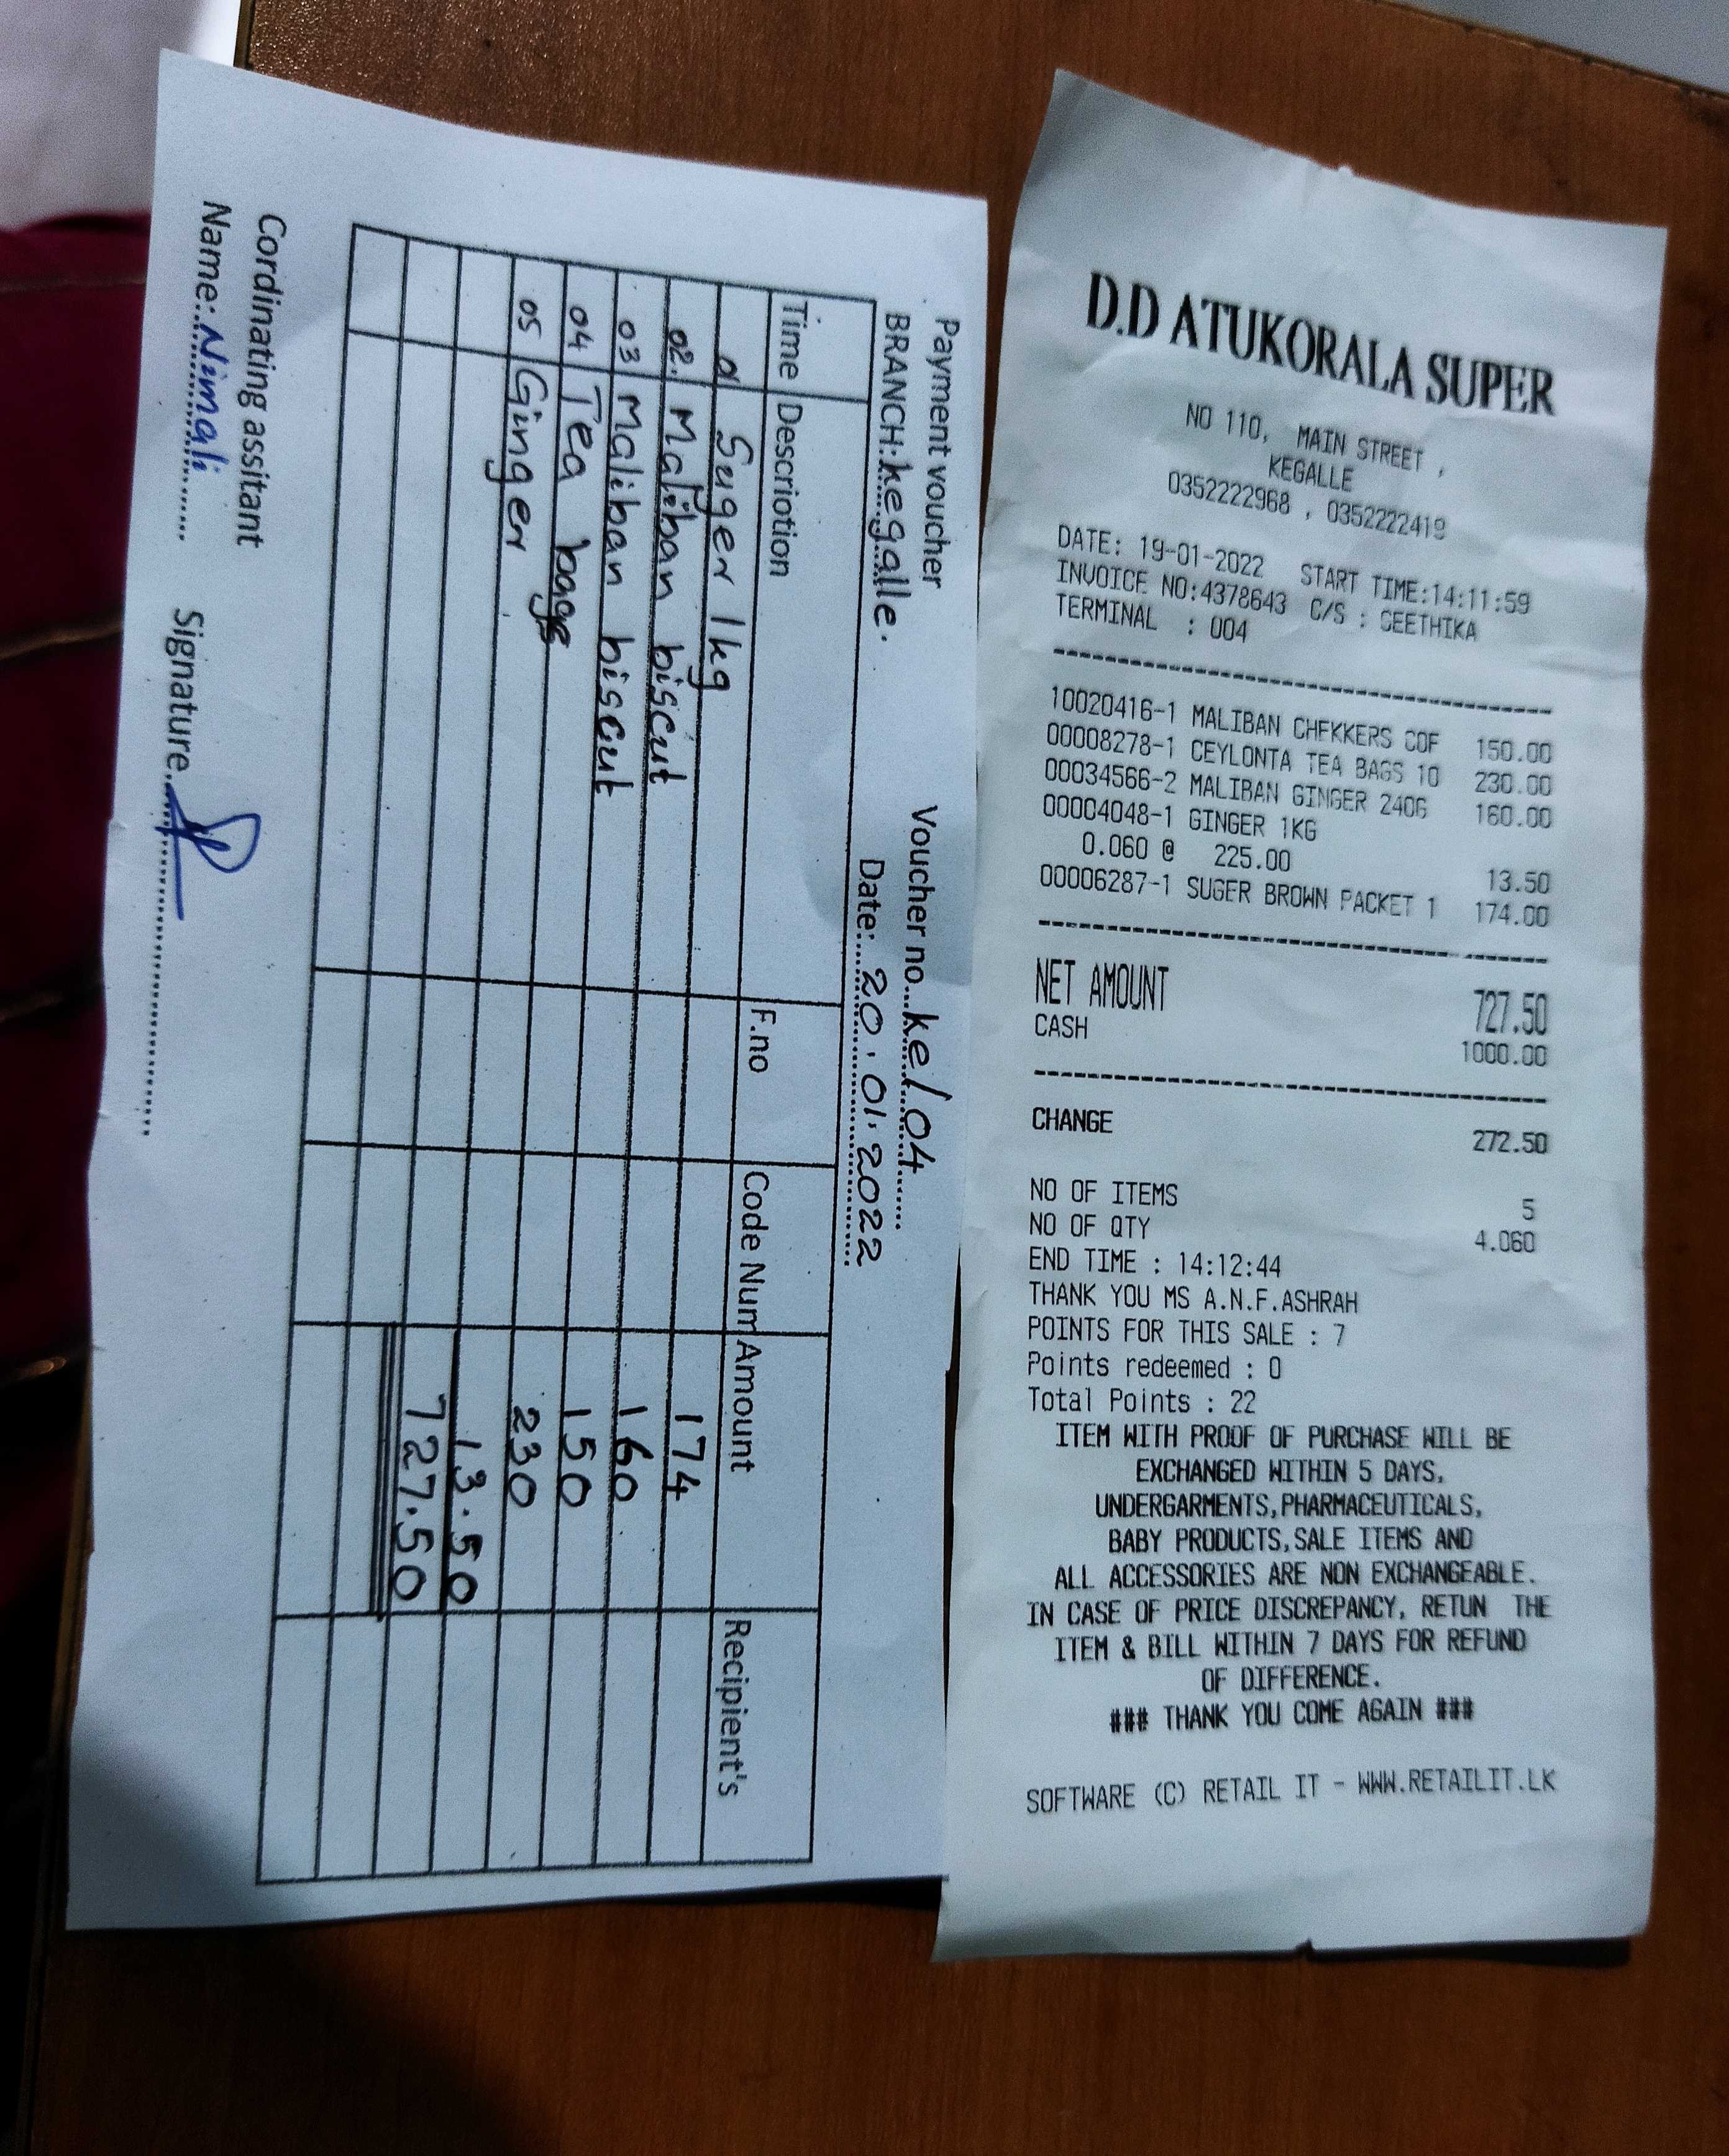 Payment voucher
Voucher no...ke/04........
BRANCH:kegalle.
Date:...20.01.2022
Time Descriotion F.no Code Num Amount Recipient's
01 Suger 1kg 174
02. Maliban biscut 160
03 Maliban biscut 150
04 Tea bags 230
05 Ginger 13.50
727.50
Cordinating assitant
Name:.Nimali......... Signature.............................
D.D ATUKORALA SUPER
NO 110, MAIN STREET ,
KEGALLE
0352222968 , 0352222419
DATE: 19-01-2022 START TIME:14:11:59
INVOICE NO:4378643 C/S : GEETHIKA
TERMINAL : 004
10020416-1 MALIBAN CHEKKERS COF 150.00
00008278-1 CEYLONTA TEA BAGS 10 230.00
00034566-2 MALIBAN GINGER 240G 160.00
00004048-1 GINGER 1KG
0.060 @ 225.00 13.50
00006287-1 SUGER BROWN PACKET 1 174.00
NET AMOUNT 727.50
CASH 1000.00
CHANGE 272.50
NO OF ITEMS 5
NO OF QTY 4.060
END TIME : 14:12:44
THANK YOU MS A.N.F.ASHRAH
POINTS FOR THIS SALE : 7
Points redeemed : 0
Total Points : 22
ITEM WITH PROOF OF PURCHASE WILL BE
EXCHANGED WITHIN 5 DAYS,
UNDERGARMENTS,PHARMACEUTICALS,
BABY PRODUCTS,SALE ITEMS AND
ALL ACCESSORIES ARE NON EXCHANGEABLE.
IN CASE OF PRICE DISCREPANCY, RETUN THE
ITEM & BILL WITHIN 7 DAYS FOR REFUND
OF DIFFERENCE.
### THANK YOU COME AGAIN ###
SOFTWARE (C) RETAIL IT - WWW.RETAILIT.LK